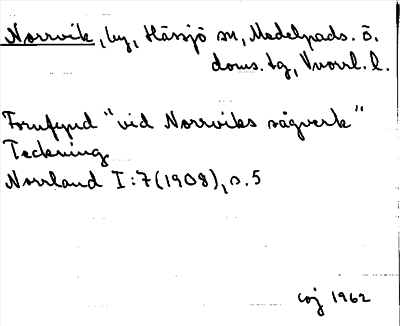 Norrvik, by, Hässjö sn, Medelpads. ö.
doms. tg, Vnorrl. l.
Fornfynd "vid Norrviks sågverk"
Teckning
Norrland I:7 (1908), s. 5
coj 1962